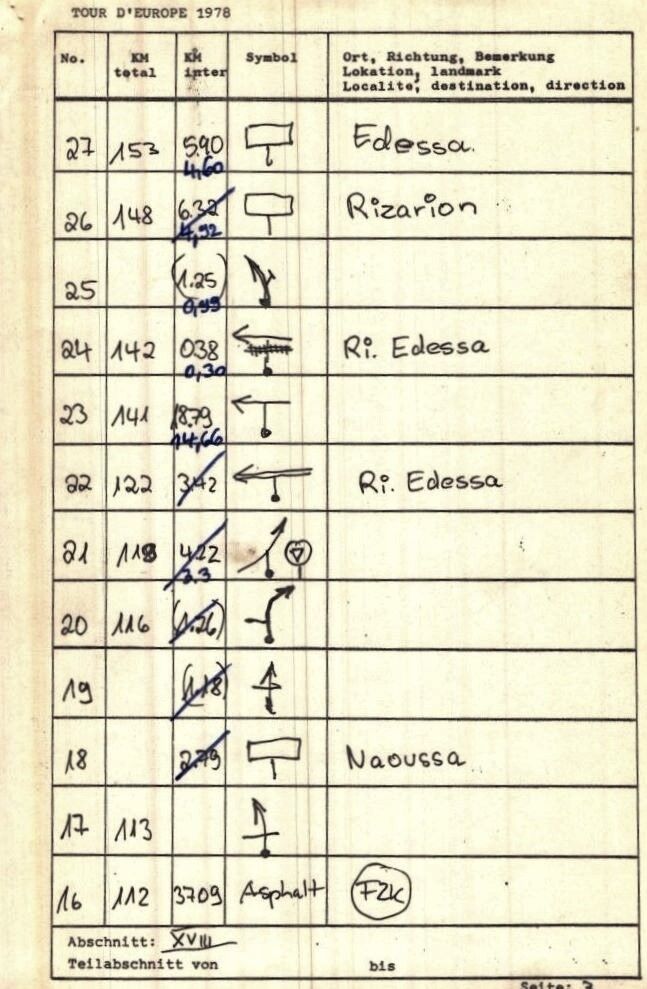 TOUR D'EUROPE 1978
No. KM total KM inter Symbol Ort, Richtung, Bemerkung
Lokation, landmark
Localité, destination, direction
27 153 5.90 Edessa.
4,60
26 148 6.32 Rizarion
4,92
25 (1.25)
0,99
24 142 038 Ri. Edessa
0,30
23 141 18.79
14,66
22 122 3.42 Ri. Edessa
21 118 4.22
3.3
20 116 (1.26)
19 (1.18)
18 2.79 Naoussa
17 113
16 112 3709 Asphalt FZK
Abschnitt: XVIII
Teilabschnitt von bis
Seite: 3